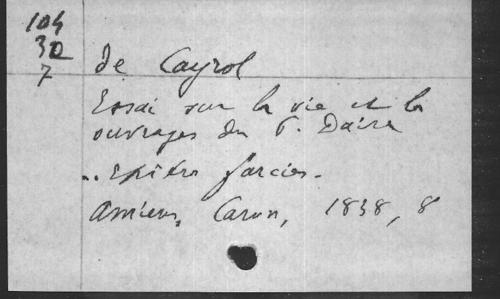 104
30
7
de Cayrol
Essai sur la vie et les
ouvrages du P. Daire
.. Epîtres farcies.
Amiens, Caron, 1838, 8